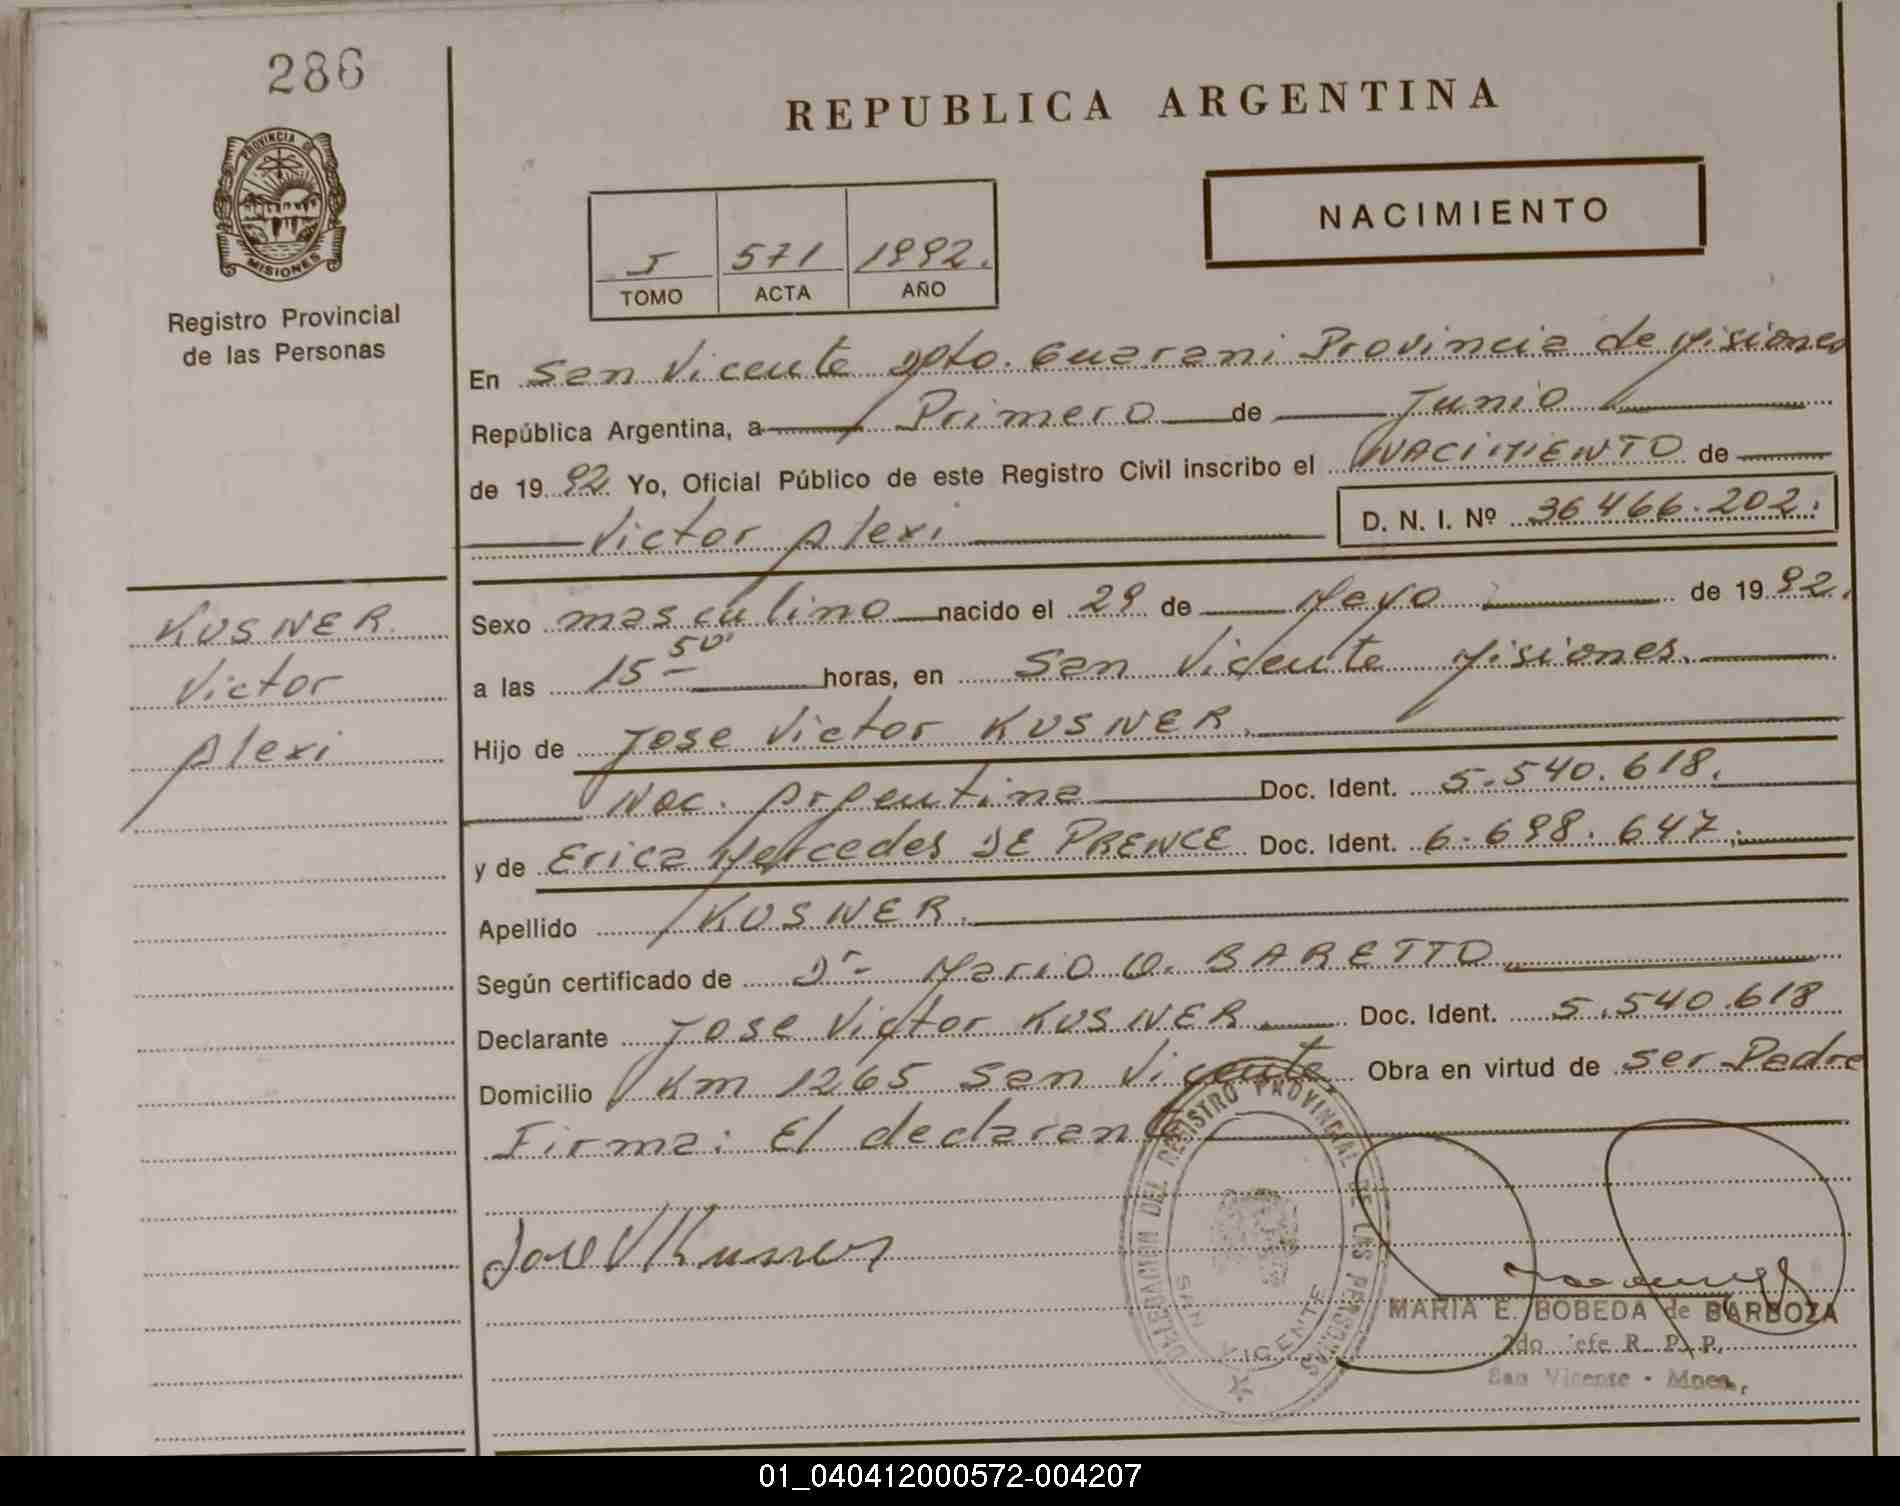 286
REPUBLICA ARGENTINA
PROVINCIA DE
MISIONES
Registro Provincial
de las Personas
NACIMIENTO
I 571 1992.
TOMO ACTA AÑO
En San Vicente Dpto. Guarani Provincia de Misiones
República Argentina, a Primero de Junio
de 1992. Yo, Oficial Público de este Registro Civil inscribo el NACIMIENTO de
Victor Alexi D. N. I. Nº 36466.202.
KUSNER.
Victor
Alexi
Sexo masculino nacido el 29 de Mayo de 1992.
a las 15 50' horas, en San Vicente Misiones.
Hijo de Jose Victor KUSNER.
Nac. Argentina Doc. Ident. 5.540.618.
y de Erica Mercedes DE PRENCE Doc. Ident. 6.698.647.
Apellido KUSNER.
Según certificado de Dr. Mario O. BARETTO
Declarante Jose Victor KUSNER. Doc. Ident. 5.540.618
Domicilio Km 1265 San Vicente. Obra en virtud de ser Padre
Firma: El declarante
Jose V Kusner
DELEGACION DEL REGISTRO PROVINCIAL DE LAS PERSONAS
SAN VICENTE
MARIA E. BOBEDA de BARBOZA
2do Jefe R. P. P.
San Vicente - Mnes.
01_040412000572-004207